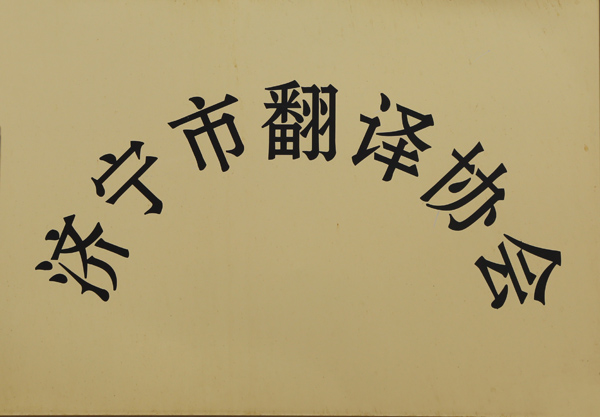 济宁市翻译协会